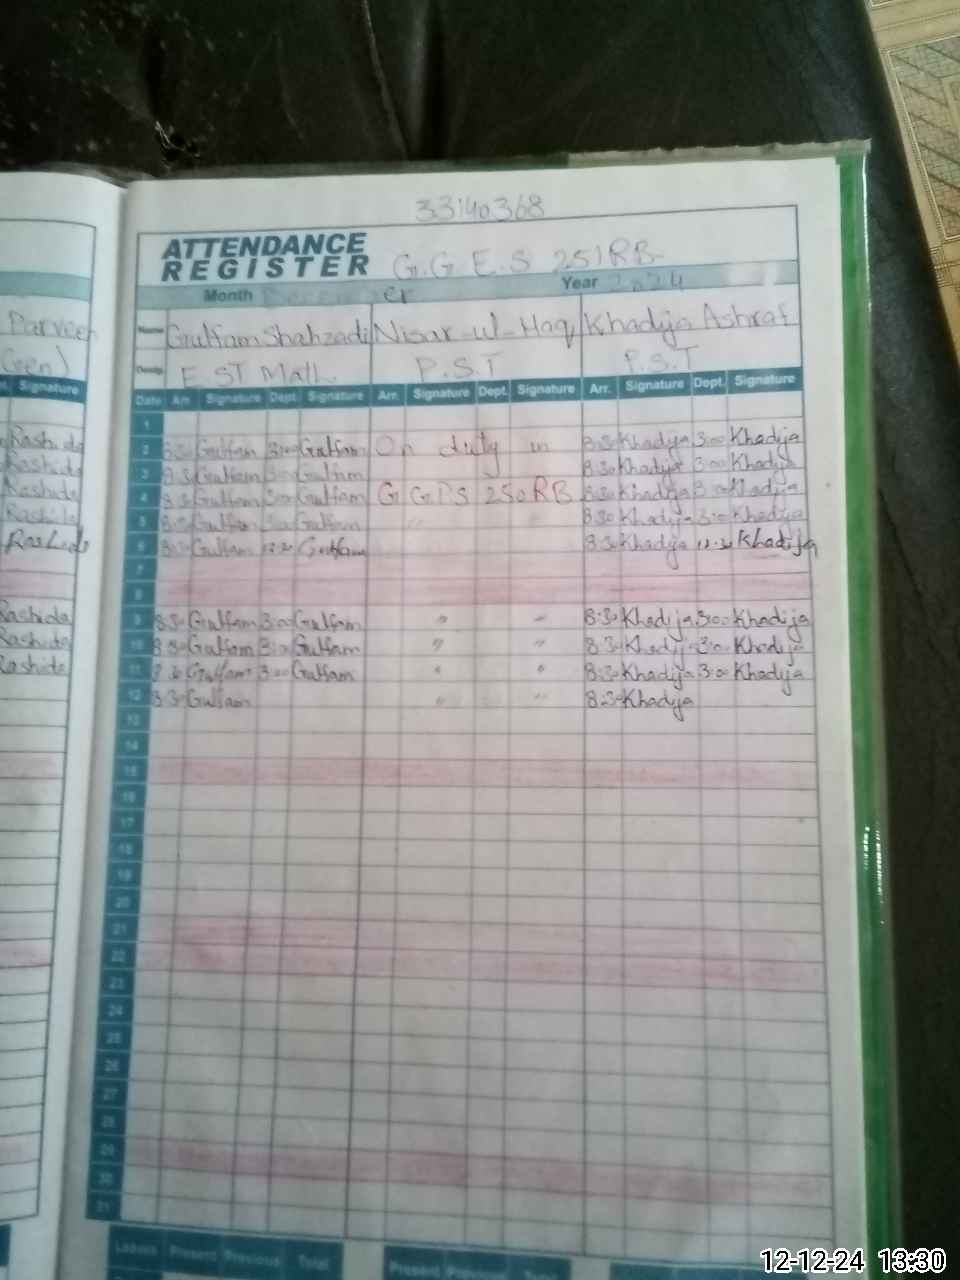 33140368
ATTENDANCE
REGISTER G.G.E.S 251RB
Month December Year 2024
Parveen Name Gulfam Shahzadi Nisar-ul-Haq Khadija Ashraf
(Gen) Desig E ST Math P.S.T P.S.T
Signature Date Arr. Signature Dept. Signature Arr. Signature Dept. Signature Arr. Signature Dept. Signature
1
Rashida 2 8:30 Gulfam 3:00 Gulfam On duty in 8:30 Khadija 3:00 Khadija
Rashida 3 8:30 Gulfam 3:00 Gulfam 8:30 Khadija 3:00 Khadija
Rashida 4 8:30 Gulfam 3:00 Gulfam G.G.P.S 250RB 8:30 Khadija 3:00 Khadija
Rashida 5 8:30 Gulfam 3:00 Gulfam " 8:30 Khadija 3:00 Khadija
Rashida 6 8:30 Gulfam 12:30 Gulfam 8:30 Khadija 12:30 Khadija
7
8
Rashida 9 8:30 Gulfam 3:00 Gulfam " " 8:30 Khadija 3:00 Khadija
Rashida 10 8:30 Gulfam 3:00 Gulfam " " 8:30 Khadija 3:00 Khadija
Rashida 11 8:30 Gulfam 3:00 Gulfam " " 8:30 Khadija 3:00 Khadija
12 8:30 Gulfam " " 8:30 Khadija
13
14
15
16
17
18
19
20
21
22
23
24
25
26
27
28
29
30
31
Leaves Present Previous Total Present
12-12-24 13:30